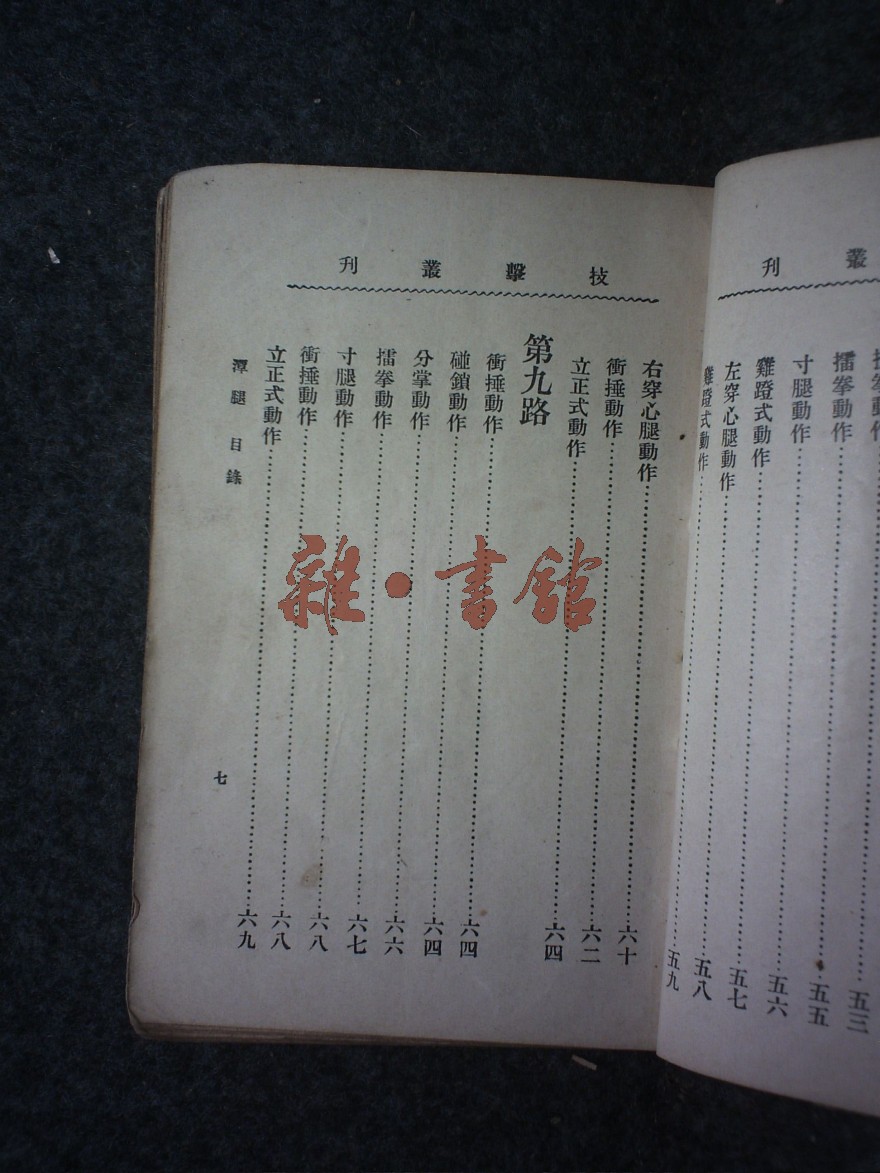 叢刊
拳動作……五三
擂拳動作……五五
寸腿動作……五六
雞蹬式動作……五七
左穿心腿動作……五八
雞蹬式動作……五九
技擊叢刊
右穿心腿動作……六十
衝捶動作……六二
立正式動作……六四
第九路
衝捶動作……六四
碰鎖動作……六四
分掌動作……六六
擂拳動作……六七
寸腿動作……六八
衝捶動作……六八
立正式動作……六九
潭腿目錄 七
雜·書館